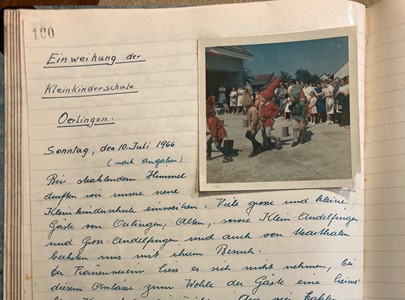 100
Einweihung der
Kleinkinderschule
Oerlingen.
Sonntag, den 10. Juli 1966
(nach angaben)
Bei strahlendem Himmel
durften wir unsere neue
Kleinkinderschule einweihen. Viele grosse und kleine
Gäste von Oerlingen, Alten, sowie Klein Andelfingen
und Gross-Andelfingen und auch von Marthalen
beehrten uns mit ihrem Besuch.
Der Frauenverein liess es sich nicht nehmen, bei
diesem Anlasse zum Wohle der Gäste eine